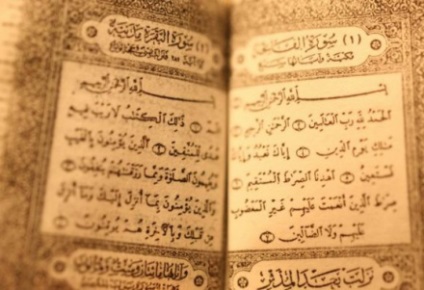 (١) سُورَةُ الفَاتِحَةِ
مكية وآياتها سبع
بِسْمِ اللَّهِ الرَّحْمَٰنِ الرَّحِيمِ
الْحَمْدُ لِلَّهِ رَبِّ الْعَالَمِينَ الرَّحْمَٰنِ الرَّحِيمِ
مَٰلِكِ يَوْمِ الدِّينِ إِيَّاكَ نَعْبُدُ وَإِيَّاكَ
نَسْتَعِينُ اهْدِنَا الصِّرَاطَ الْمُسْتَقِيمَ
صِرَاطَ الَّذِينَ أَنْعَمْتَ عَلَيْهِمْ غَيْرِ الْمَغْضُوبِ
عَلَيْهِمْ وَلَا الضَّالِّينَ
نزلت بعد المدثر
(٢) سُورَةُ البَقَرَةِ مَدَنِيَّة
بِسْمِ اللَّهِ الرَّحْمَٰنِ الرَّحِيمِ
ذَٰلِكَ الْكِتَٰبُ لَا رَيْبَ فِيهِ
هُدًى لِلْمُتَّقِينَ الَّذِينَ يُؤْمِنُونَ بِالْغَيْبِ
وَيُقِيمُونَ الصَّلَوٰةَ وَمِمَّا رَزَقْنَٰهُمْ يُنْفِقُونَ
وَالَّذِينَ يُؤْمِنُونَ بِمَا أُنْزِلَ إِلَيْكَ وَمَا أُنْزِلَ
مِنْ قَبْلِكَ وَبِالْآخِرَةِ هُمْ يُوقِنُونَ